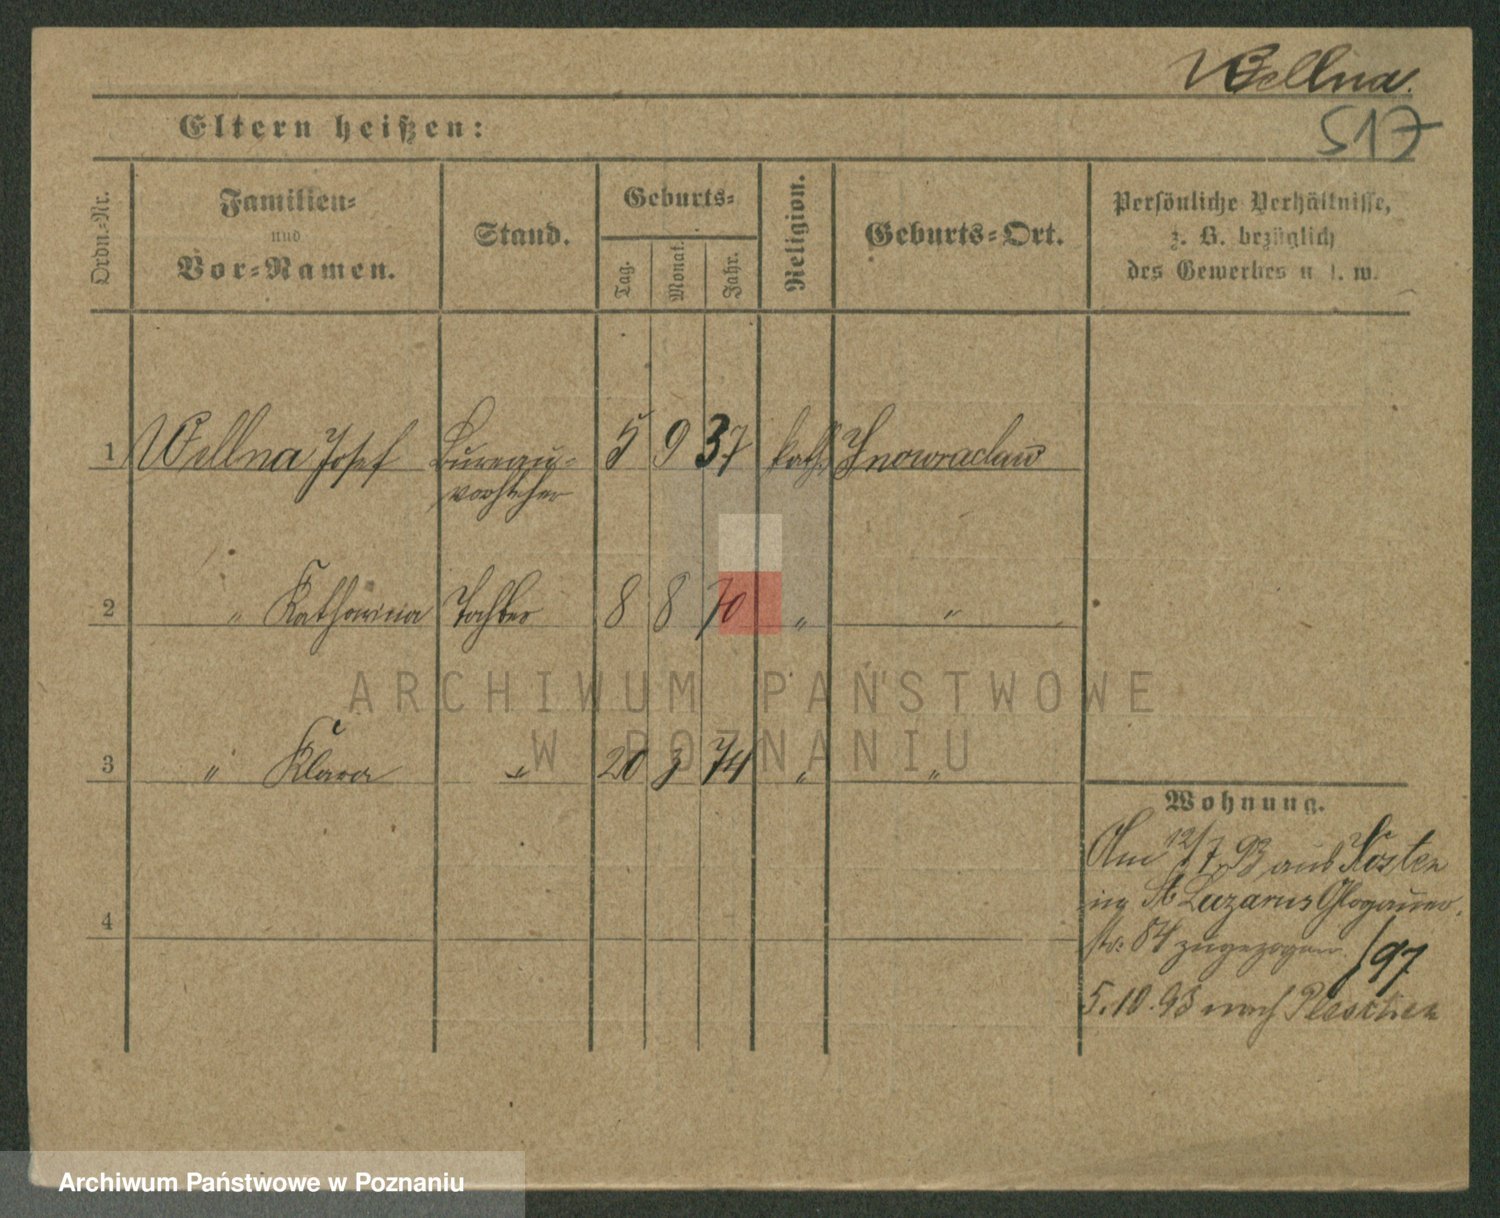 Wellna.
517
Eltern heißen:
Ordn.-Nr.
Familien-
und
Vor-Namen.
Stand.
Geburts-
Tag.
Monat.
Jahr.
Religion.
Geburts-Ort.
Persönliche Verhältnisse,
z. B. bezüglich
des Gewerbes u. s. w.
1 Wellna Josef Bureau- 5 9 37 kath. Inowraclaw
vorsteher
2 " Katharina Tochter 8 8 70 " "
3 " Klara " 20 3 74 " "
4
Wohnung.
Am 12/7. 93 aus Kosten
in St Lazarus Glogauer
str. 84 zugezogen /97
5.10.93 nach Pleschen
ARCHIWUM PAŃSTWOWE
W POZNANIU
Archiwum Państwowe w Poznaniu